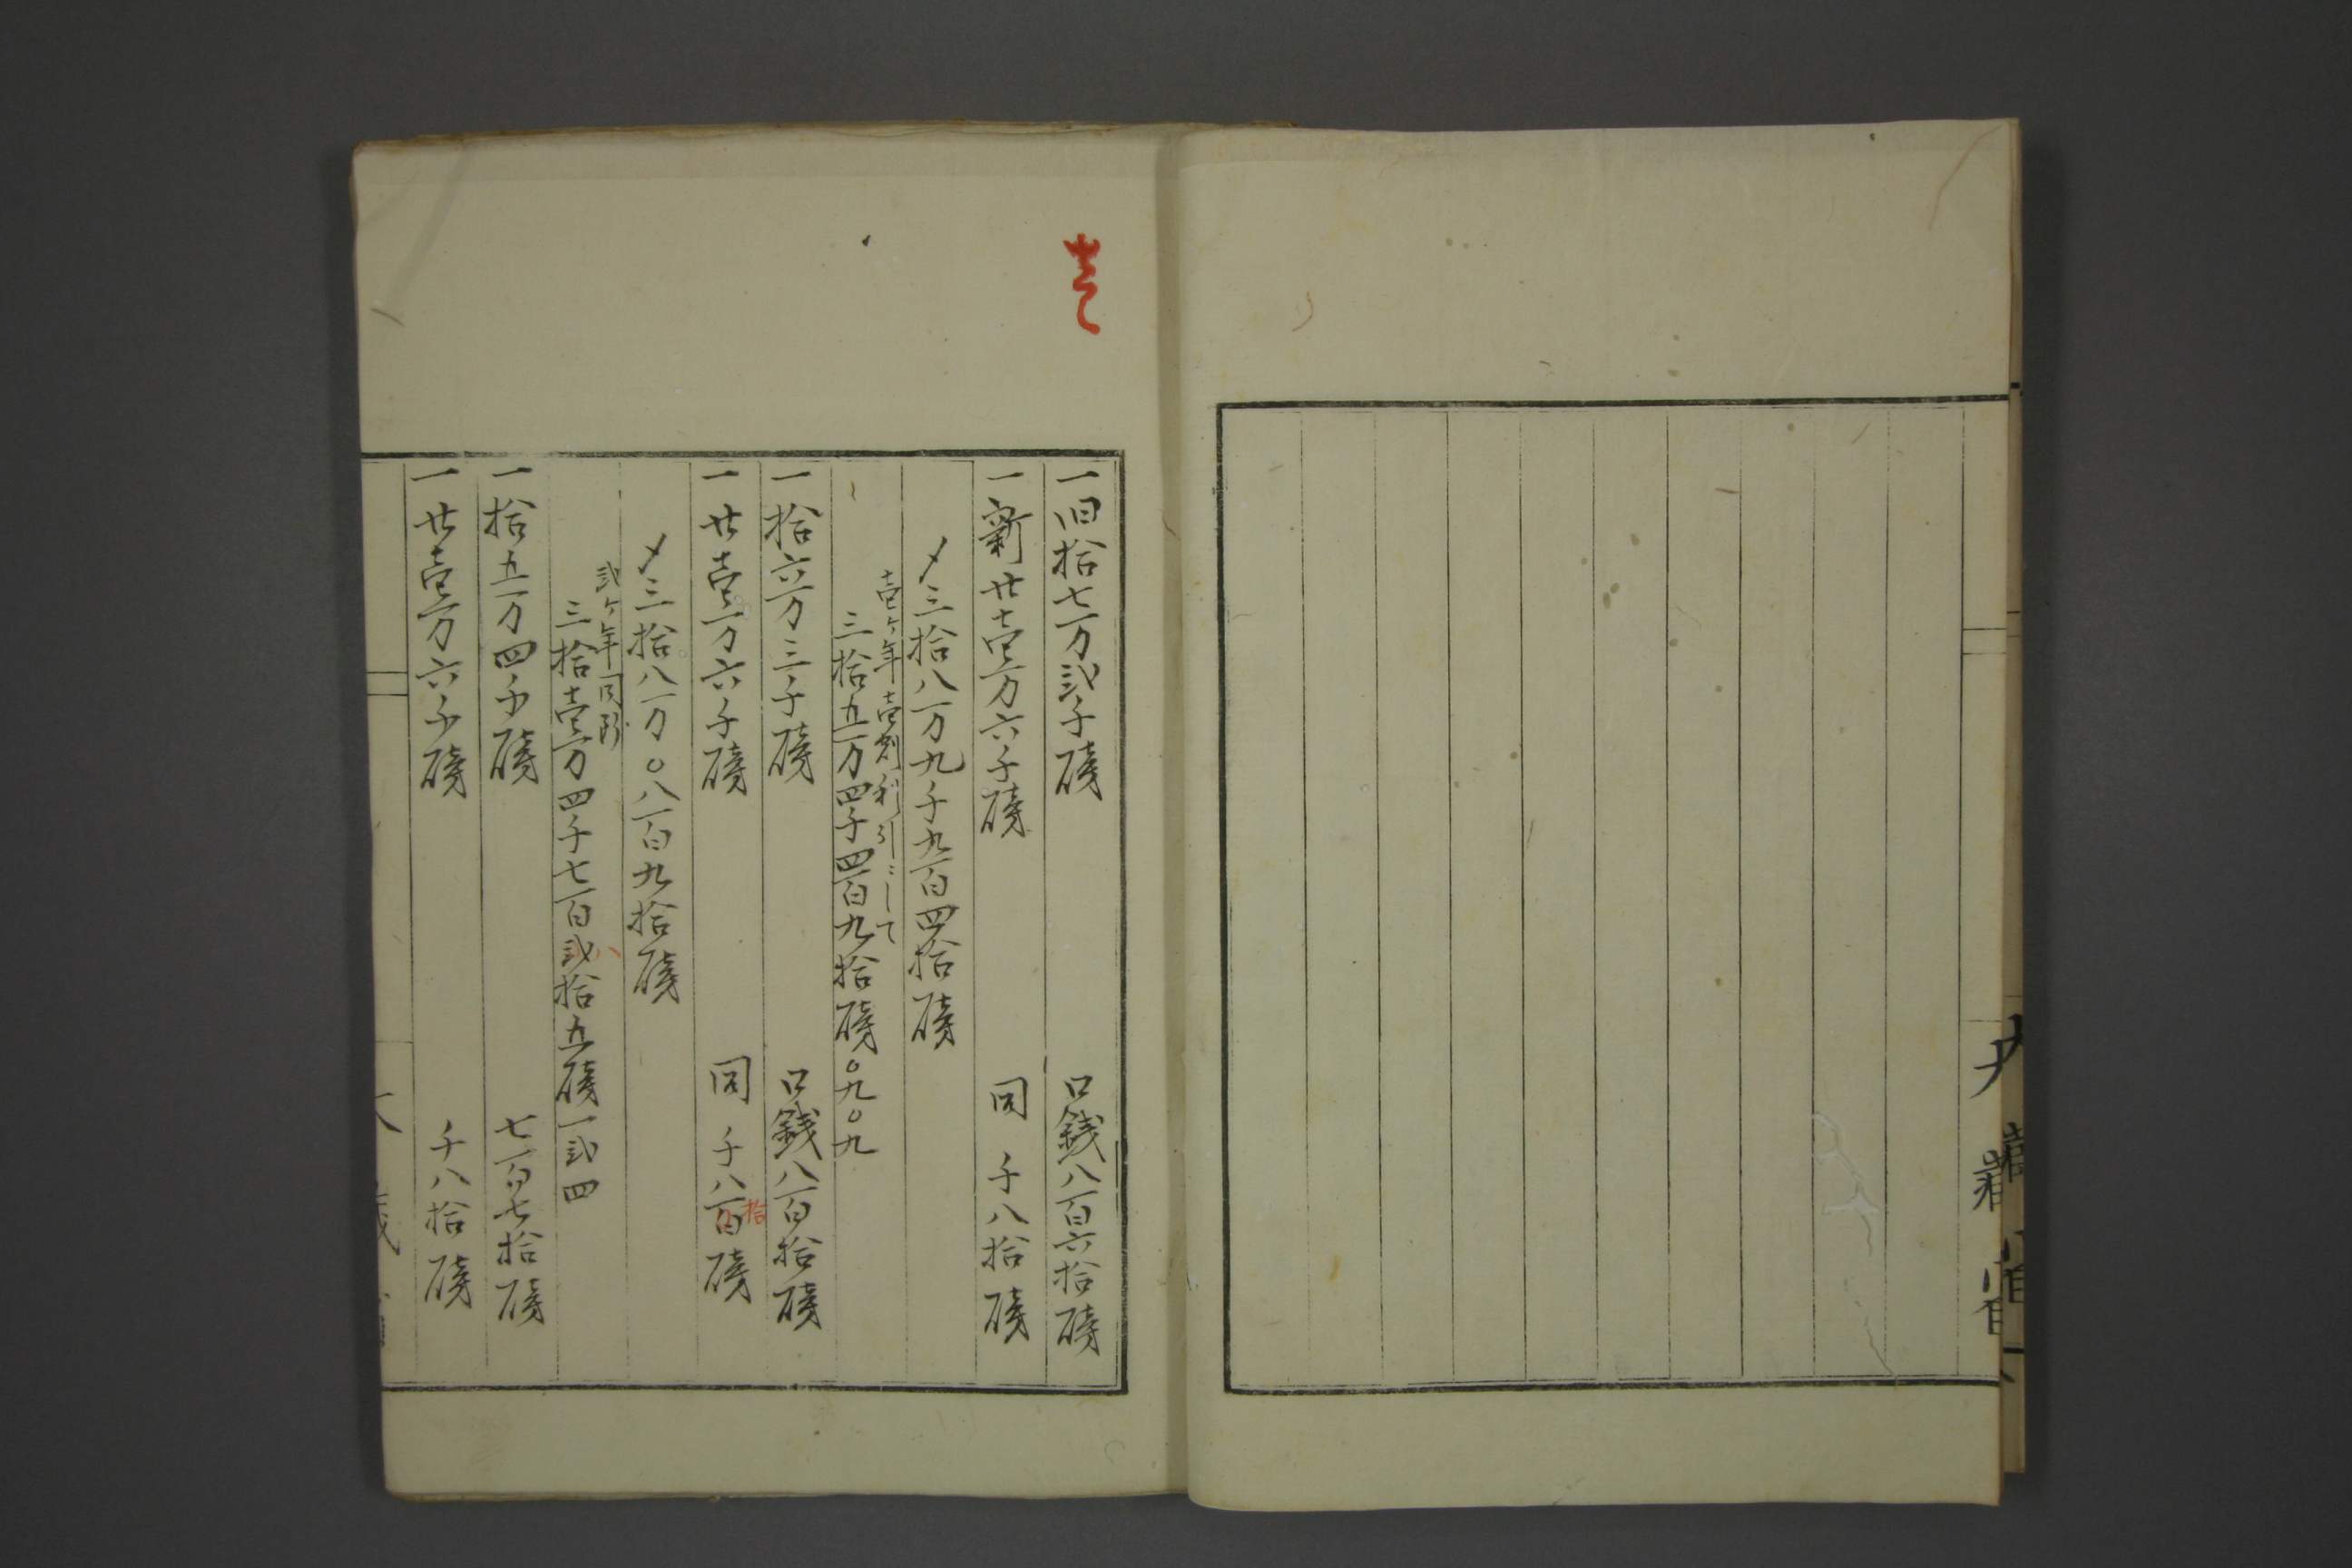 大藏省
一旧拾七万弐千磅 口銭八百六拾磅
一新廿壱万六千磅 同 千八拾磅
〆三拾八万九千九百四拾磅
壱ヶ年壱割利引ニして
三拾五万四千四百九拾磅〇九〇九
一拾六万三千磅 口銭八百拾磅
一廿壱万六千磅 同 千八百磅
拾
〆三拾八万〇八百九拾磅
弐ヶ年同断
三拾壱万四千七百弐拾五磅一弐四
八
一拾五万四千磅 七百七拾磅
一廿壱万六千磅 千八拾磅